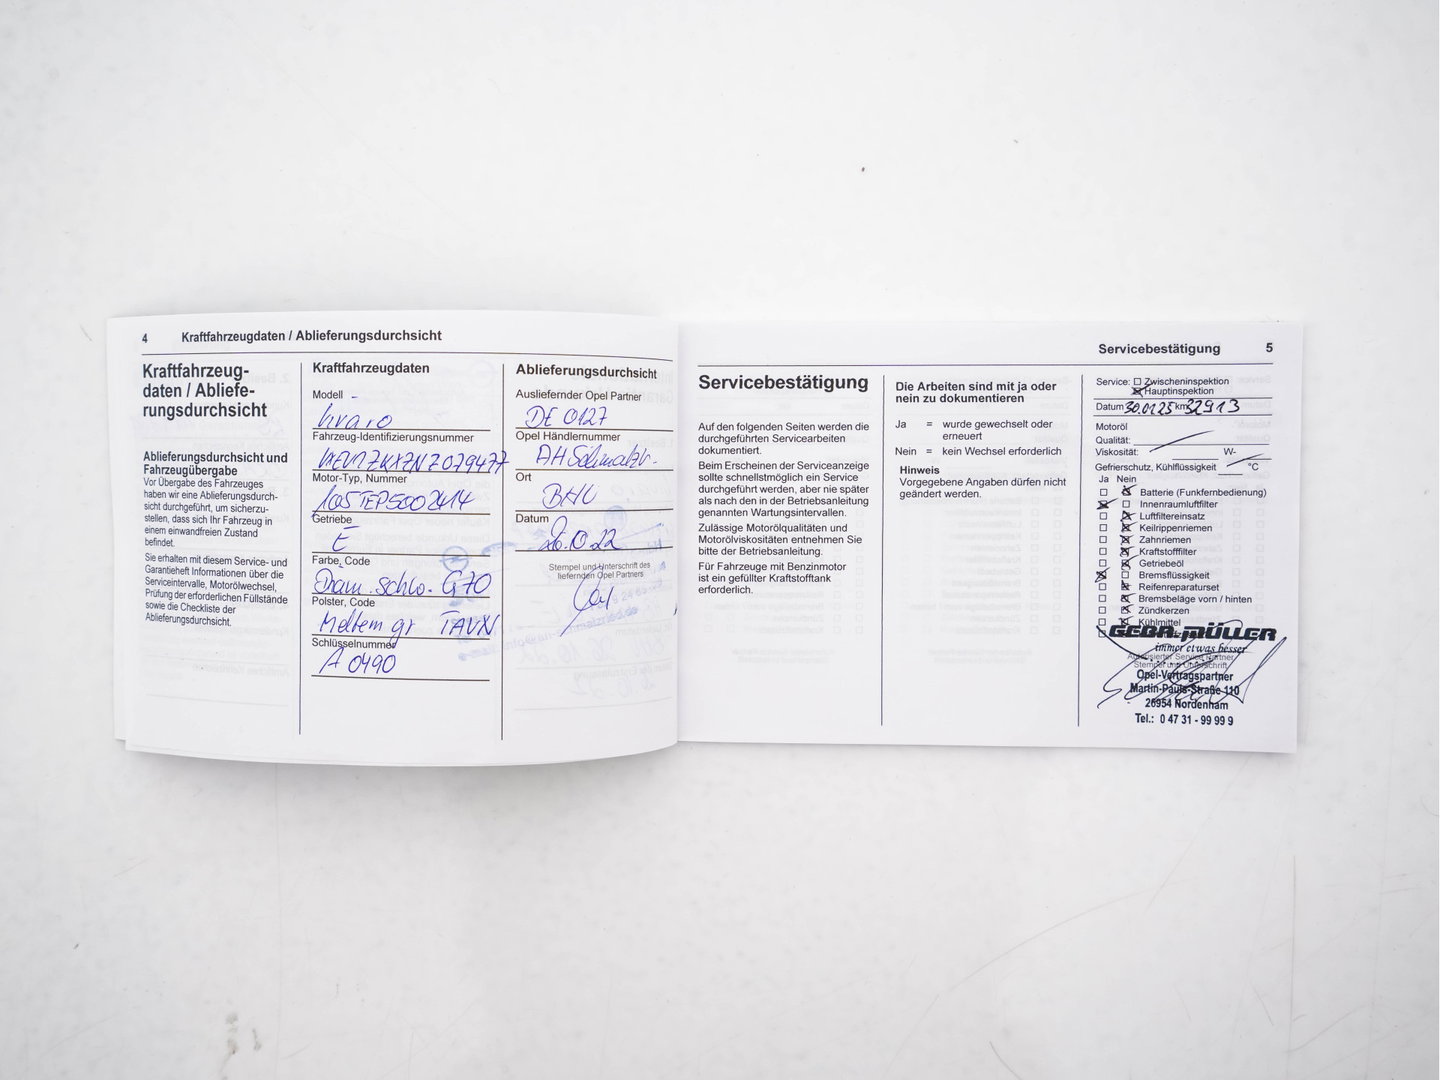 4 Kraftfahrzeugdaten / Ablieferungsdurchsicht
Kraftfahrzeug-
daten / Abliefe-
rungsdurchsicht
Ablieferungsdurchsicht und
Fahrzeugübergabe
Vor Übergabe des Fahrzeuges
haben wir eine Ablieferungsdurch-
sicht durchgeführt, um sicherzu-
stellen, dass sich Ihr Fahrzeug in
einem einwandfreien Zustand
befindet.
Sie erhalten mit diesem Service- und
Garantieheft Informationen über die
Serviceintervalle, Motorölwechsel,
Prüfung der erforderlichen Füllstände
sowie die Checkliste der
Ablieferungsdurchsicht.
Kraftfahrzeugdaten
Modell
Vivaro
Fahrzeug-Identifizierungsnummer
Motor-Typ, Nummer
Getriebe
E
Farbe, Code
Diam. schw. G70
Polster, Code
Meltem gr TAVX
Schlüsselnummer
A 0490
Ablieferungsdurchsicht
Ausliefernder Opel Partner
DE 0127
Opel Händlernummer
AH Schmalzr.
Ort
BHV
Datum
26.10.22
Stempel und Unterschrift des
liefernden Opel Partners
Servicebestätigung 5
Servicebestätigung
Auf den folgenden Seiten werden die
durchgeführten Servicearbeiten
dokumentiert.
Beim Erscheinen der Serviceanzeige
sollte schnellstmöglich ein Service
durchgeführt werden, aber nie später
als nach den in der Betriebsanleitung
genannten Wartungsintervallen.
Zulässige Motorölqualitäten und
Motorölviskositäten entnehmen Sie
bitte der Betriebsanleitung.
Für Fahrzeuge mit Benzinmotor
ist ein gefüllter Kraftstofftank
erforderlich.
Die Arbeiten sind mit ja oder
nein zu dokumentieren
Ja = wurde gewechselt oder
erneuert
Nein = kein Wechsel erforderlich
Hinweis
Vorgegebene Angaben dürfen nicht
geändert werden.
Service: Zwischeninspektion
Hauptinspektion
Datum 30.01.25 km 32913
Motoröl
Qualität:
Viskosität: W-
Gefrierschutz, Kühlflüssigkeit °C
Ja Nein
Batterie (Funkfernbedienung)
Innenraumluftfilter
Luftfiltereinsatz
Keilrippenriemen
Zahnriemen
Kraftstofffilter
Getriebeöl
Bremsflüssigkeit
Reifenreparaturset
Bremsbeläge vorn / hinten
Zündkerzen
Kühlmittel
GEBR. MÜLLER
immer etwas besser
Autorisierter Service Partner
Stempel und Unterschrift
Opel-Vertragspartner
Martin-Pauls-Straße 110
26954 Nordenham
Tel.: 0 47 31 - 99 99 9